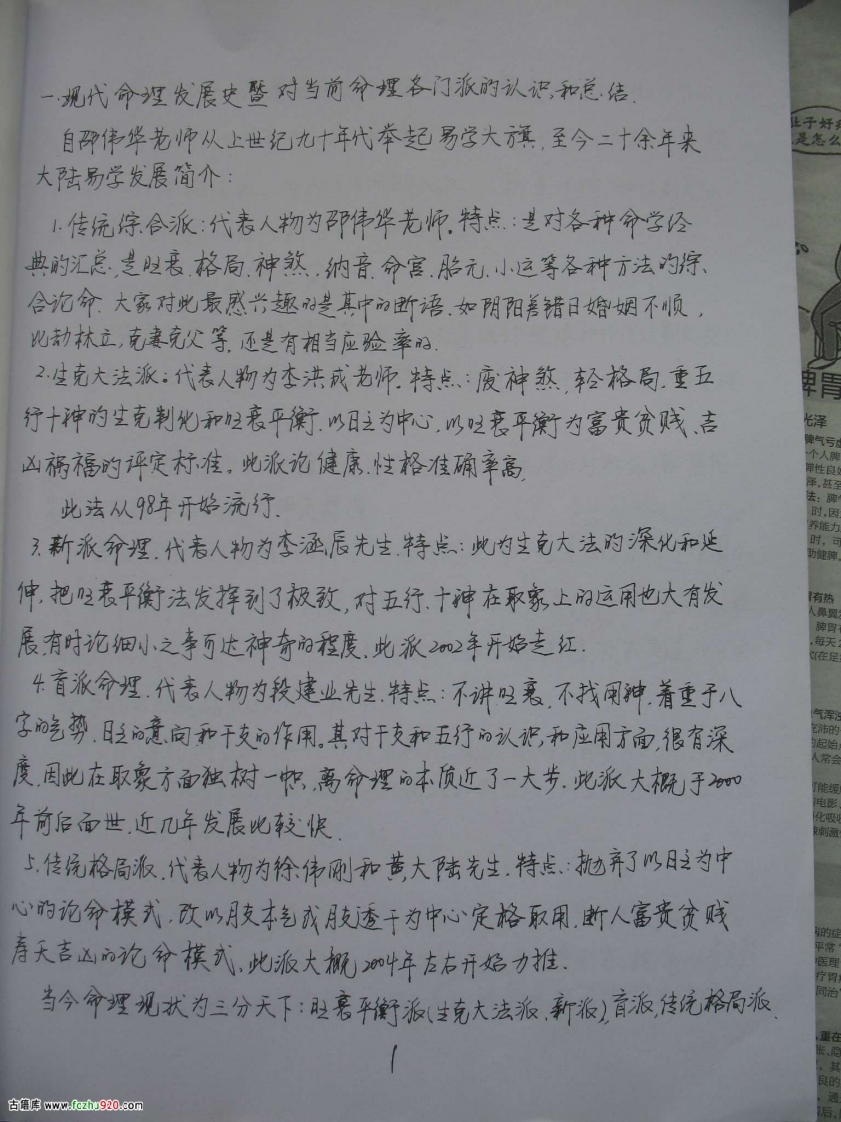 一.现代命理发展史暨对当前命理各门派的认识和总结.
自邵伟华老师从上世纪九十年代举起易学大旗,至今二十余年来
大陆易学发展简介:
1.传统综合派:代表人物为邵伟华老师。特点:是对各种命学经
典的汇总,是旺衰、格局、神煞、纳音、命宫、胎元、小运等各种方法的综
合论命.大家对此最感兴趣的是其中的断语.如阴阳差错日婚姻不顺,
比劫林立,克妻克父等.还是有相当应验率的.
2.生克大法派。代表人物为李洪成老师.特点:废神煞,轻格局.重五
行十神的生克制化和旺衰平衡.以日主为中心,以旺衰平衡为富贵贫贱、吉
凶祸福的评定标准.此派论健康.性格准确率高,
此法从98年开始流行.
3.新派命理.代表人物为李涵辰先生.特点:此为生克大法的深化和延
伸,把旺衰平衡法发挥到了极致,对五行、十神在取象上的运用也大有发
展,有时论细小之事可达神奇的程度.此派2002年开始走红.
4.盲派命理.代表人物为段建业先生.特点:不讲旺衰,不找用神.着重于八
字的气势、日主的意向和干支的作用。其对干支和五行的认识和应用方面,很有深
度,因此在取象方面独树一帜,离命理的本质近了一大步.此派大概于2000
年前后面世,近几年发展比较快.
5.传统格局派.代表人物为徐伟刚和黄大陆先生.特点:抛弃了以日主为中
心的论命模式,改以月支本气或月支透干为中心定格取用.断人富贵贫贱
寿夭吉凶的论命模式.此派大概2004年左右开始力推.
当今命理现状为三分天下:旺衰平衡派(生克大法派、新派),盲派,传统格局派.
1
古籍库 www.fczhu920.com
肚子好疼
是怎么
脾胃
光泽
脾气亏虚
有热
气浑浊
同治
重在